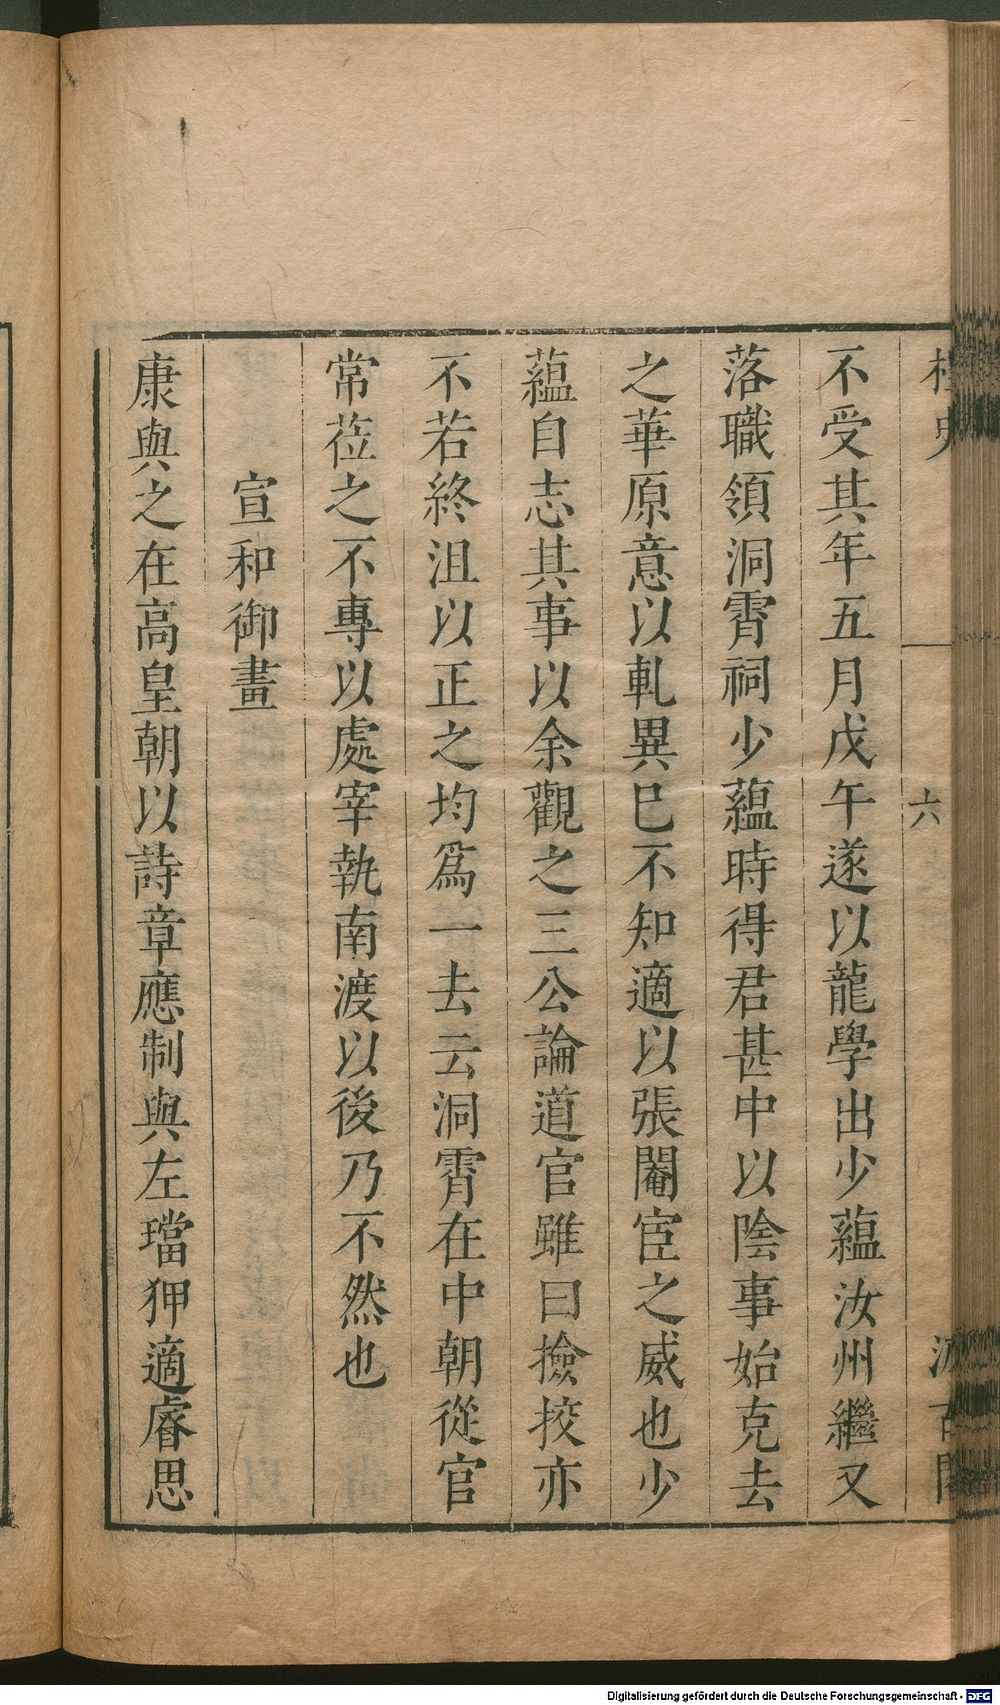 史
六
不受其年五月戊午遂以龍學出少蘊汝州繼又
落職領洞霄祠少蘊時得君甚中以陰事始克去
之華原意以軋異巳不知適以張閹宦之威也少
蘊自志其事以余觀之三公論道官雖曰撿挍亦
不若終沮以正之均爲一去云洞霄在中朝從官
常莅之不專以處宰執南渡以後乃不然也
宣和御畫
康與之在高皇朝以詩章應制與左璫狎適睿思
Digitalisierung gefördert durch die Deutsche Forschungsgemeinschaft - DFG